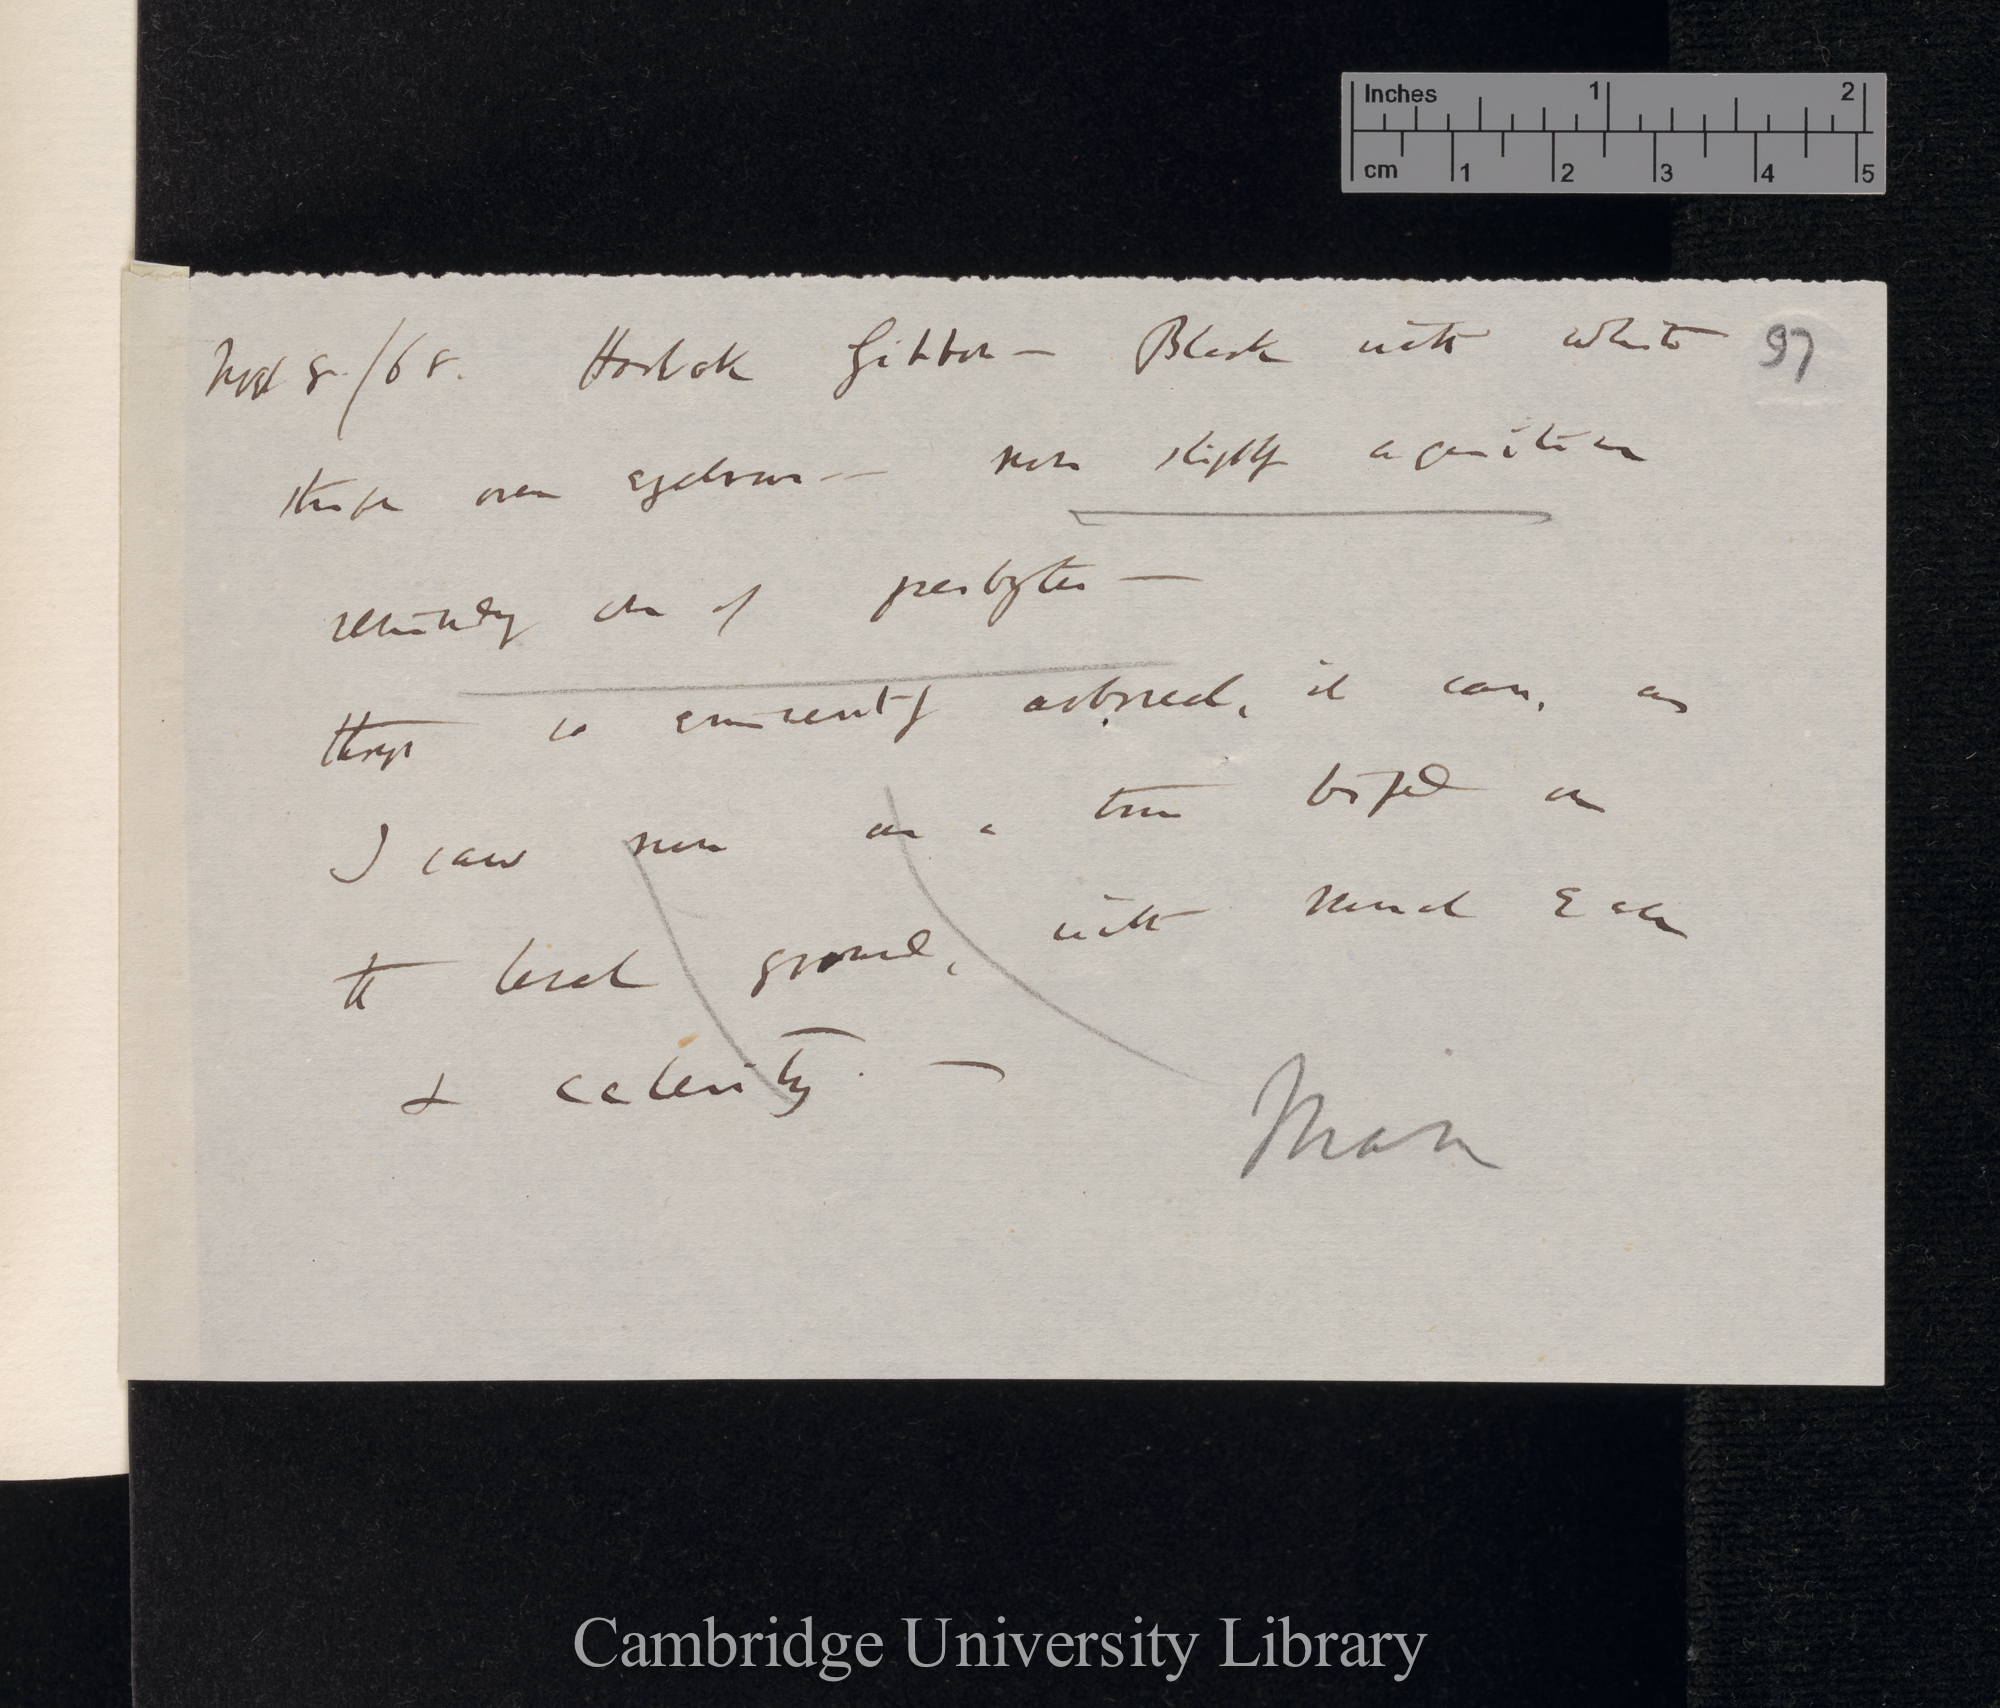 Inches 1 2
cm 1 2 3 4 5
8/68. Hoolock Gibbon — Black with white 97
stripe over eyebrows — nose slightly aquiline
reminding one of presbyter —
though so eminently arboreal, it can, as
I saw run on a tree biped on
the level ground, with much ease
& celerity. —
Man
Cambridge University Library